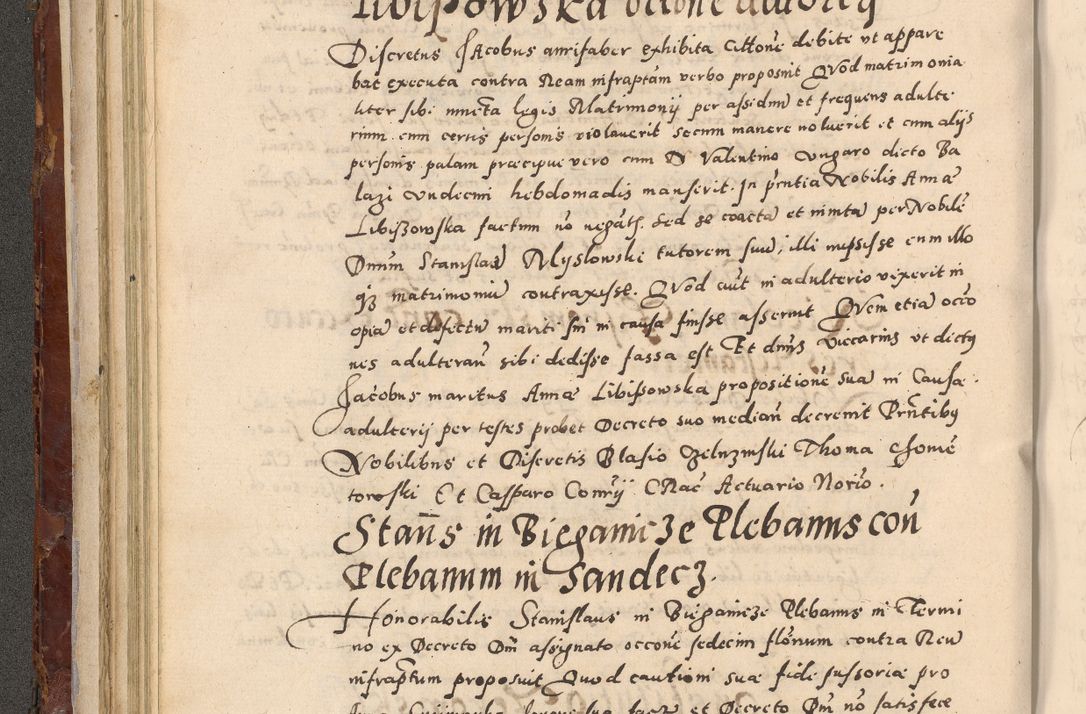 Libissowska occone adulterij
Discretus Jacobus aurifaber exhibita Cittone debite ut appare
bat executa contra Ream infraptam verbo proposuit Quod matrimonia
liter sibi iuncta legis Matrimonij per assiduu et frequens adulte
rium cum certis personis violaverit secum manere noluerit et cum alijs
personis palam praecipue vero cum D Valentino Ungaro dicto Ba
lazi undecim hebdomadis manserit. In pntia Nobilis Annae
Libiszowska factum no negats. Sed se coacta et invita per Nobile
Dnum Stanislau Myslowski tutorem suu, illi nupsisse cum illo
qz matrimoniu contraxisse. Quod aut in adulterio vixerit in
opia et defectu mariti sui in causa fuisse asseruit Quem etia occo
nes adulteran sibi dedisse fassa est Et dnus Viccarius ut dictus
Jacobus maritus Annae Libissowska propositione sua in Causa
adulterij per testes probet Decreto suo median decrevit Prntibus
Nobilibus et Discretis Blasio Zeluzinski Thoma Chome
towski Et Casparo Conrij CRac Actuario Norio.
Stans in Bieganicze Plebanus con
Plebanum in Sandecz.
Honorabilis Stanislaus in Bieganicze Plebanus in Termi
no ex Decreto Dni assignato occone sedecim florenum contra Reu
infraptum proposuit Quod cautioni suae fide iussoriae pro
et Decreto Dni no satisfece